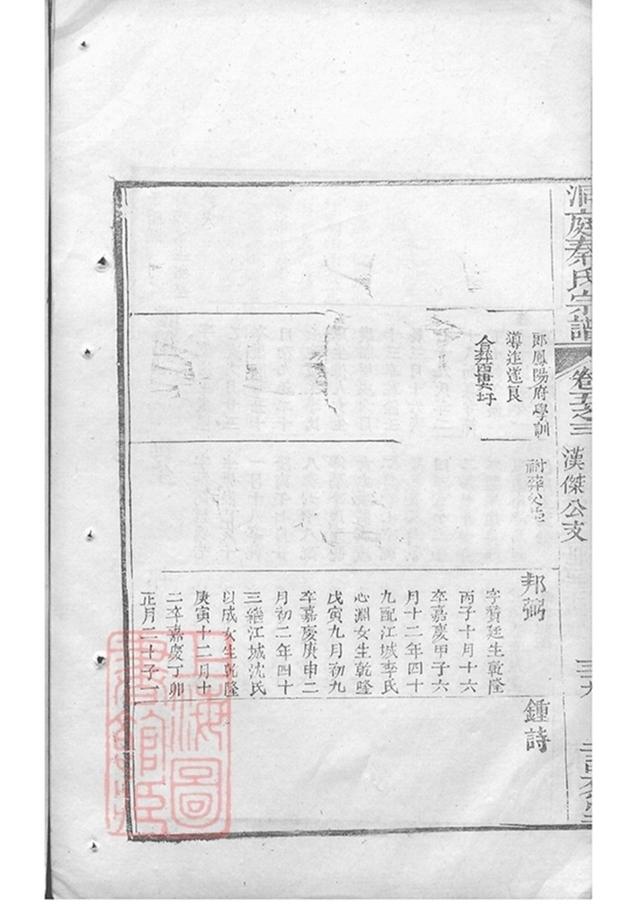 洞庭秦氏宗譜
卷五之三
漢傑公支
三十九
郎鳳陽府學訓
導進遂良
合葬百樹圩
祔葬父塋
邦弼
字贊廷生乾隆
丙子十月十六
卒嘉慶甲子六
月十二年四十
九配江城李氏
心淵女生乾隆
戊寅九月初九
卒嘉慶庚申二
月初二年四十
三繼江城沈氏
以成女生乾隆
庚寅十二月十
二卒嘉慶丁卯
正月二十子一
鍾詩
上海圖
書館藏